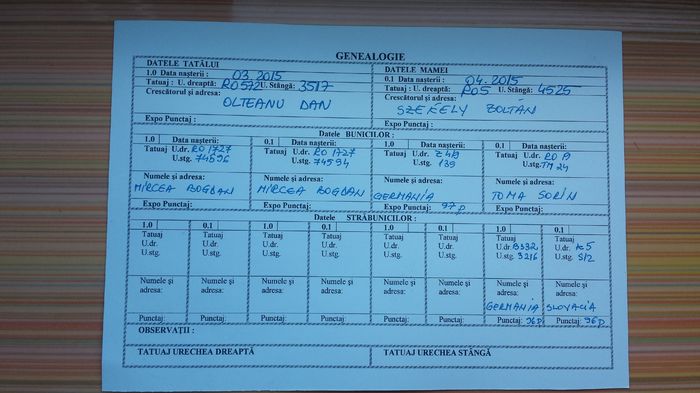 GENEALOGIE
DATELE TATĂLUI
1.0 Data nașterii : 03.2015
Tatuaj : U. dreaptă: RO572 U. Stângă: 3517
Crescătorul și adresa:
OLTEANU DAN
Expo Punctaj :
DATELE MAMEI
0.1 Data nașterii : 04.2015
Tatuaj : U. dreaptă: RO5 U. Stângă: 4525
Crescătorul și adresa:
SZEKELY ZOLTAN
Expo Punctaj :
Datele BUNICILOR :
1.0 Data nașterii:
Tatuaj U.dr. RO 1727
U.stg. 74596
Numele și adresa:
MIRCEA BOGDAN
Expo Punctaj:
0.1 Data nașterii:
Tatuaj U.dr. RO 1727
U.stg. 74594
Numele și adresa:
MIRCEA BOGDAN
Expo Punctaj:
1.0 Data nașterii:
Tatuaj U.dr.
U.stg. 139
Numele și adresa:
GERMANIA
Expo Punctaj: 97 p
0.1 Data nașterii:
Tatuaj U.dr. RO
U.stg. TM 24
Numele și adresa:
TOMA SORIN
Expo Punctaj:
Datele STRĂBUNICILOR :
1.0
Tatuaj
U.dr.
U.stg.
Numele și
adresa:
Punctaj:
0.1
Tatuaj
U.dr.
U.stg.
Numele și
adresa:
Punctaj:
1.0
Tatuaj
U.dr.
U.stg.
Numele și
adresa:
Punctaj:
0.1
Tatuaj
U.dr.
U.stg.
Numele și
adresa:
Punctaj:
1.0
Tatuaj
U.dr.
U.stg.
Numele și
adresa:
Punctaj:
0.1
Tatuaj
U.dr.
U.stg.
Numele și
adresa:
Punctaj:
1.0
Tatuaj
U.dr.
U.stg. 3216
Numele și
adresa:
GERMANIA
Punctaj: 96 p
0.1
Tatuaj
U.dr. K5
U.stg. S/2
Numele și
adresa:
SLOVACIA
Punctaj: 96 p
OBSERVAȚII :
TATUAJ URECHEA DREAPTĂ
TATUAJ URECHEA STÂNGĂ